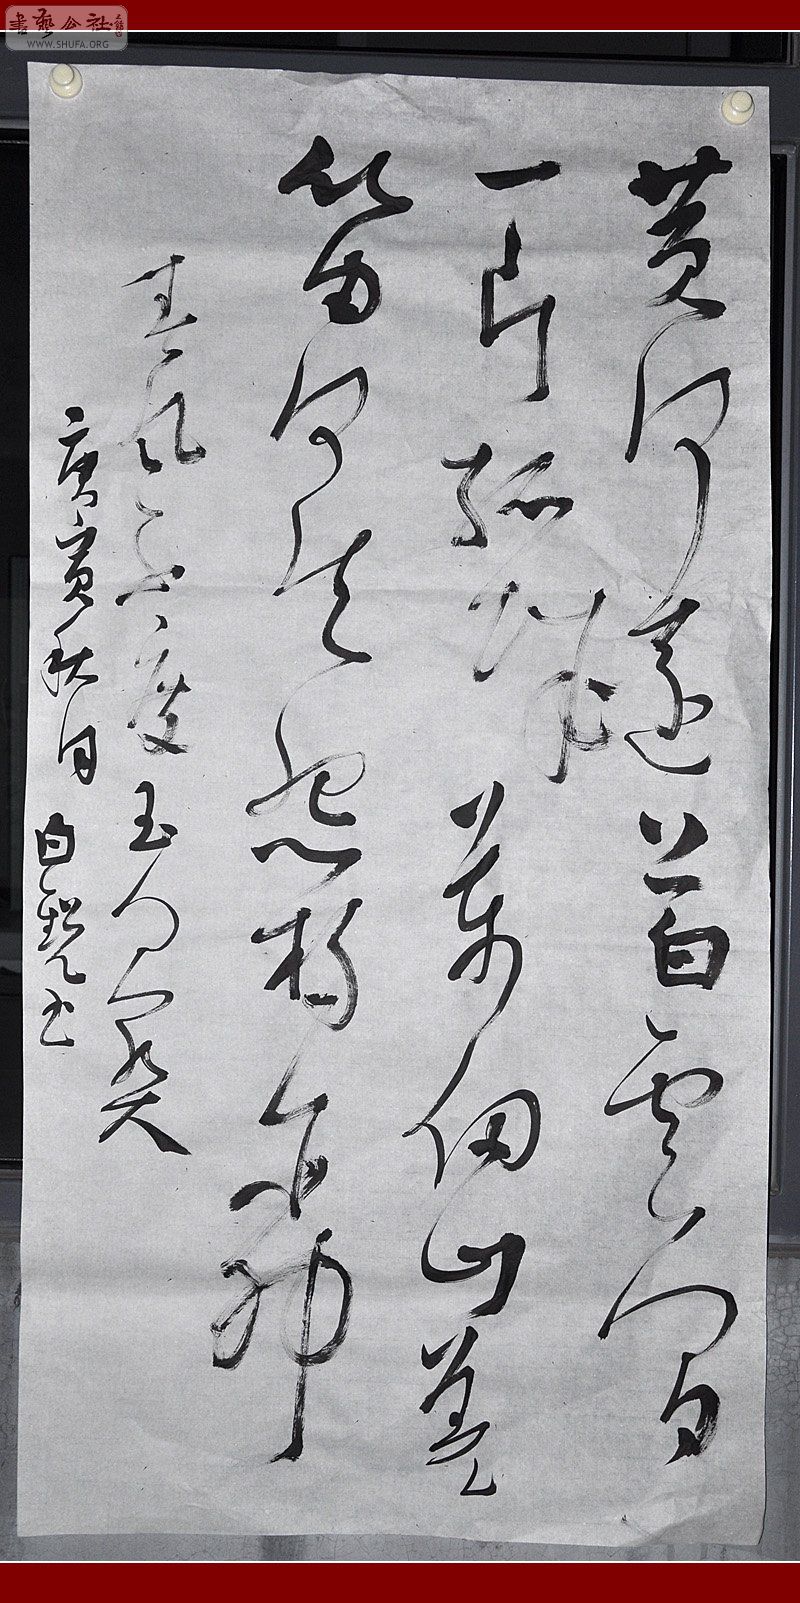 書藝公社
WWW.SHUFA.ORG
黄河遠上白雲間
一片孤城萬仞山羌
笛何須怨楊柳
春風不度玉門關
庚寅秋月 白書